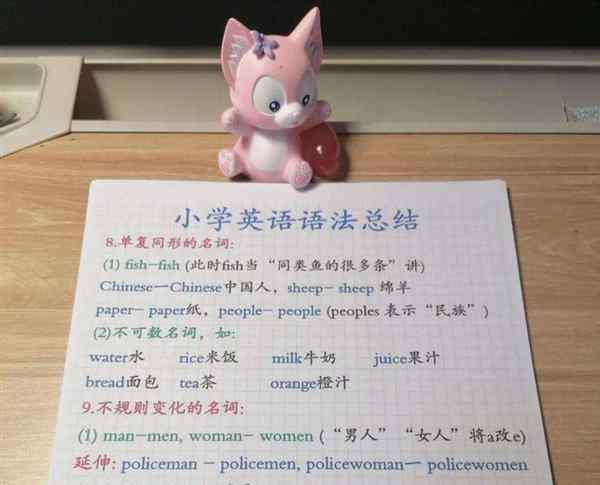 小学英语语法总结
8.单复同形的名词:
(1) fish-fish (此时fish当“同类鱼的很多条”讲)
Chinese一Chinese中国人, sheep- sheep 绵羊
paper- paper纸, people- people (peoples 表示“民族”)
(2)不可数名词, 如:
water水 rice米饭 milk牛奶 juice果汁
bread面包 tea茶 orange橙汁
9.不规则变化的名词:
(1) man-men, woman- women (“男人”“女人”将a改e)
延伸: policeman - policemen, policewoman一 policewomen